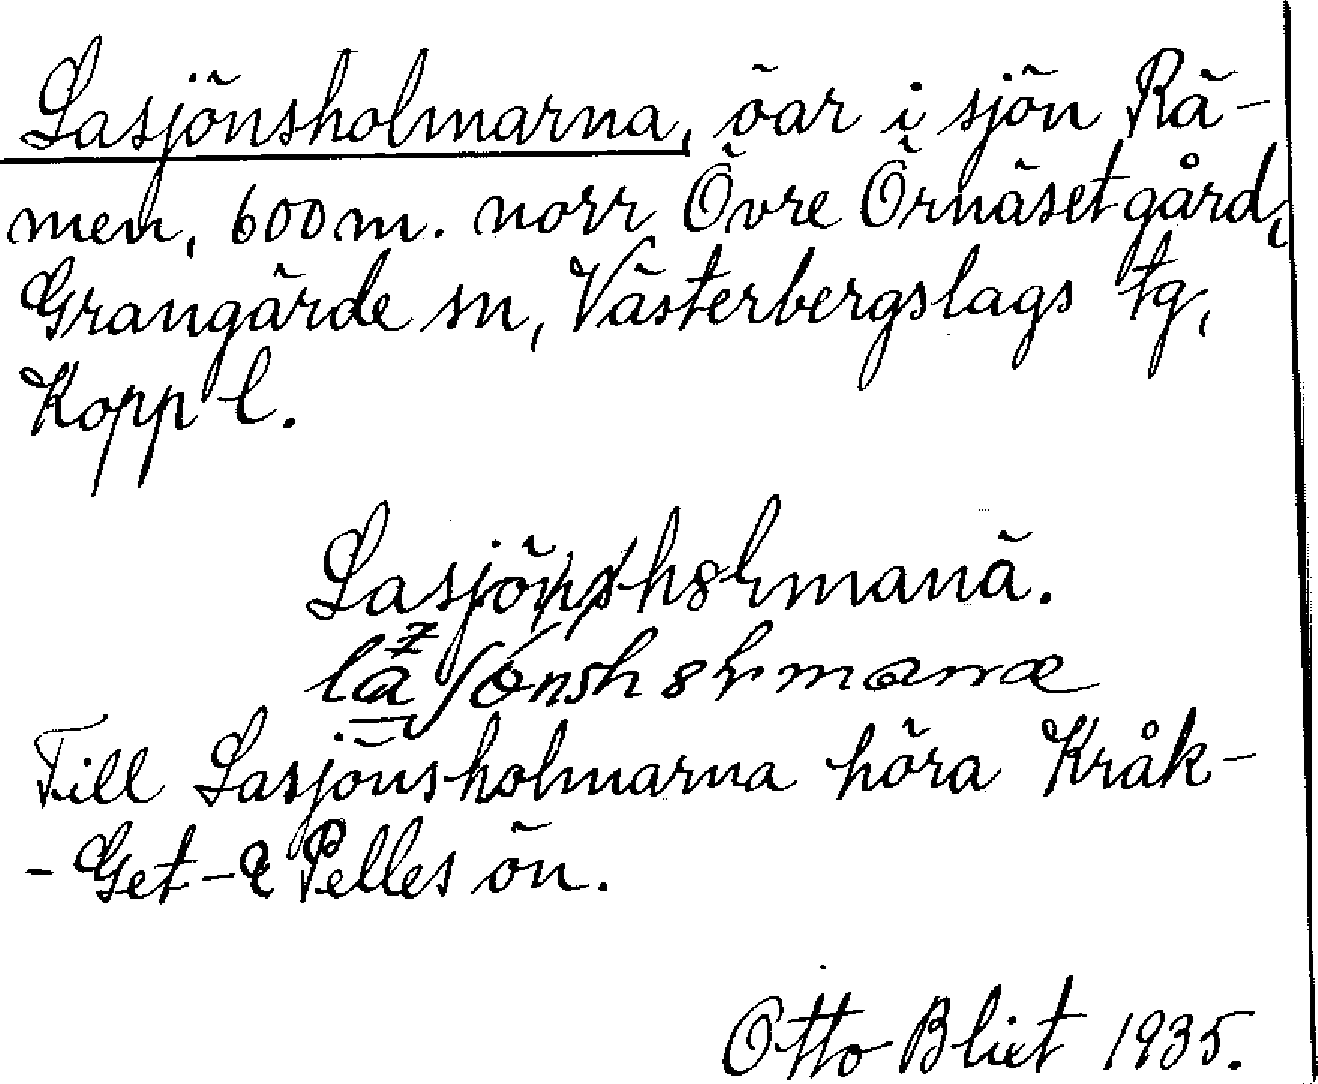 Lasjönsholmarna, öar i sjön Rä-
men, 600 m. norr Övre Örnäset gård,
Grangärde sn, Västerbergslags tg,
Kopp l.
Lasjönsholmanä.
Till Lasjönsholmarna höra Kråk-
- Get - & Pelles ön.
Otto Bliet 1935.